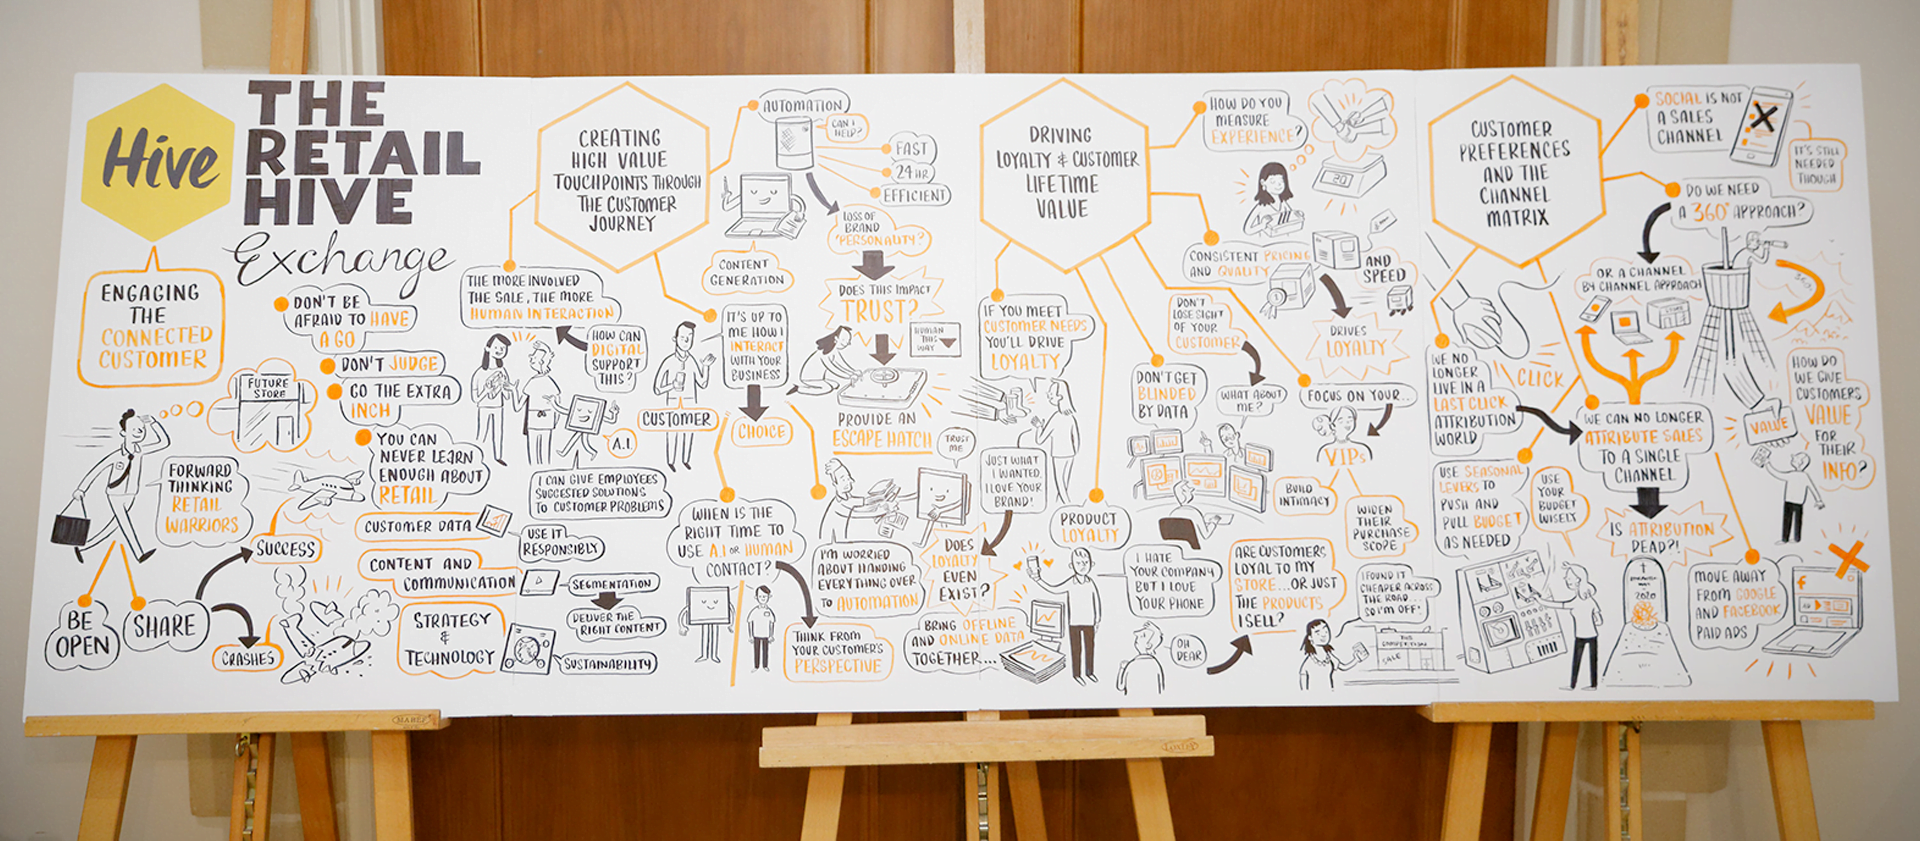 Hive
THE
RETAIL
HIVE
Exchange
ENGAGING
THE
CONNECTED
CUSTOMER
DON'T BE
AFRAID TO HAVE
A GO
DON'T JUDGE
GO THE EXTRA
INCH
YOU CAN
NEVER LEARN
ENOUGH ABOUT
RETAIL
FUTURE
STORE
FORWARD
THINKING
RETAIL
WARRIORS
BE
OPEN
SHARE
SUCCESS
CRASHES
CUSTOMER DATA
USE IT
RESPONSIBLY
CONTENT AND
COMMUNICATION
SEGMENTATION
DELIVER THE
RIGHT CONTENT
STRATEGY
&
TECHNOLOGY
SUSTAINABILITY
CREATING
HIGH VALUE
TOUCHPOINTS THROUGH
THE CUSTOMER
JOURNEY
THE MORE INVOLVED
THE SALE, THE MORE
HUMAN INTERACTION
HOW CAN
DIGITAL
SUPPORT
THIS?
A.I.
I CAN GIVE EMPLOYEES
SUGGESTED SOLUTIONS
TO CUSTOMER PROBLEMS
CUSTOMER
IT'S UP TO
ME HOW I
INTERACT
WITH YOUR
BUSINESS
CHOICE
WHEN IS THE
RIGHT TIME TO
USE A.I OR HUMAN
CONTACT?
THINK FROM
YOUR CUSTOMER'S
PERSPECTIVE
AUTOMATION
CAN I
HELP?
FAST
24 HR
EFFICIENT
CONTENT
GENERATION
LOSS OF
BRAND
"PERSONALITY?"
DOES THIS IMPACT
TRUST?
HUMAN
THIS
WAY
PROVIDE AN
ESCAPE HATCH
TRUST
ME
I'M WORRIED
ABOUT HANDING
EVERYTHING OVER
TO AUTOMATION
DRIVING
LOYALTY & CUSTOMER
LIFETIME
VALUE
IF YOU MEET
CUSTOMER NEEDS
YOU'LL DRIVE
LOYALTY
JUST WHAT
I WANTED,
I LOVE YOUR
BRAND!
DOES
LOYALTY
EVEN
EXIST?
BRING OFFLINE
AND ONLINE DATA
TOGETHER...
PRODUCT
LOYALTY
I HATE
YOUR COMPANY
BUT I LOVE
YOUR PHONE
OH
DEAR
DON'T GET
BLINDED
BY DATA
DON'T
LOSE SIGHT
OF YOUR
CUSTOMER
WHAT ABOUT
ME?
HOW DO YOU
MEASURE
EXPERIENCE?
20
CONSISTENT PRICING
AND QUALITY
AND
SPEED
DRIVES
LOYALTY
FOCUS ON YOUR...
VIPs
BUILD
INTIMACY
WIDEN
THEIR
PURCHASE
SCOPE
ARE CUSTOMERS
LOYAL TO MY
STORE...OR JUST
THE PRODUCTS
I SELL?
I FOUND IT
CHEAPER ACROSS
THE ROAD...
SO I'M OFF!
THE
COMPETITION
SALE
CUSTOMER
PREFERENCES
AND THE
CHANNEL
MATRIX
SOCIAL IS NOT
A SALES
CHANNEL
IT'S STILL
NEEDED
THOUGH
DO WE NEED
A 360° APPROACH?
OR A CHANNEL
BY CHANNEL APPROACH
360°
CLICK
WE NO
LONGER
LIVE IN A
LAST CLICK
ATTRIBUTION
WORLD
WE CAN NO LONGER
ATTRIBUTE SALES
TO A SINGLE
CHANNEL
IS ATTRIBUTION
DEAD?!
2020
USE SEASONAL
LEVERS TO
PUSH AND
PULL BUDGET
AS NEEDED
USE
YOUR
BUDGET
WISELY
HOW DO
WE GIVE
CUSTOMERS
VALUE
FOR
THEIR
INFO?
VALUE
MOVE AWAY
FROM GOOGLE
AND FACEBOOK
PAID ADS
f
MABEF